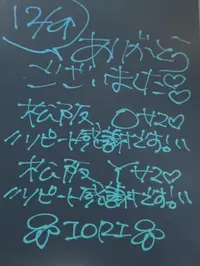 12/9
ありがとう
ございました♡
松阪 Oサン♡
リピート感謝です!!
松阪 Yサン♡
リピート感謝です!!
IORI